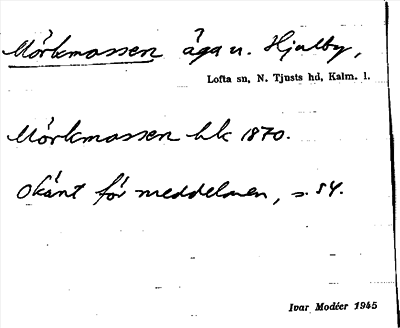 Mörkmossen äga u. Hjulby,
Lofta sn, N. Tjusts hd, Kalm. l.
Mörkmossen hk 1870.
Okänt för meddelaren, s. 54.
Ivar Modéer 1945